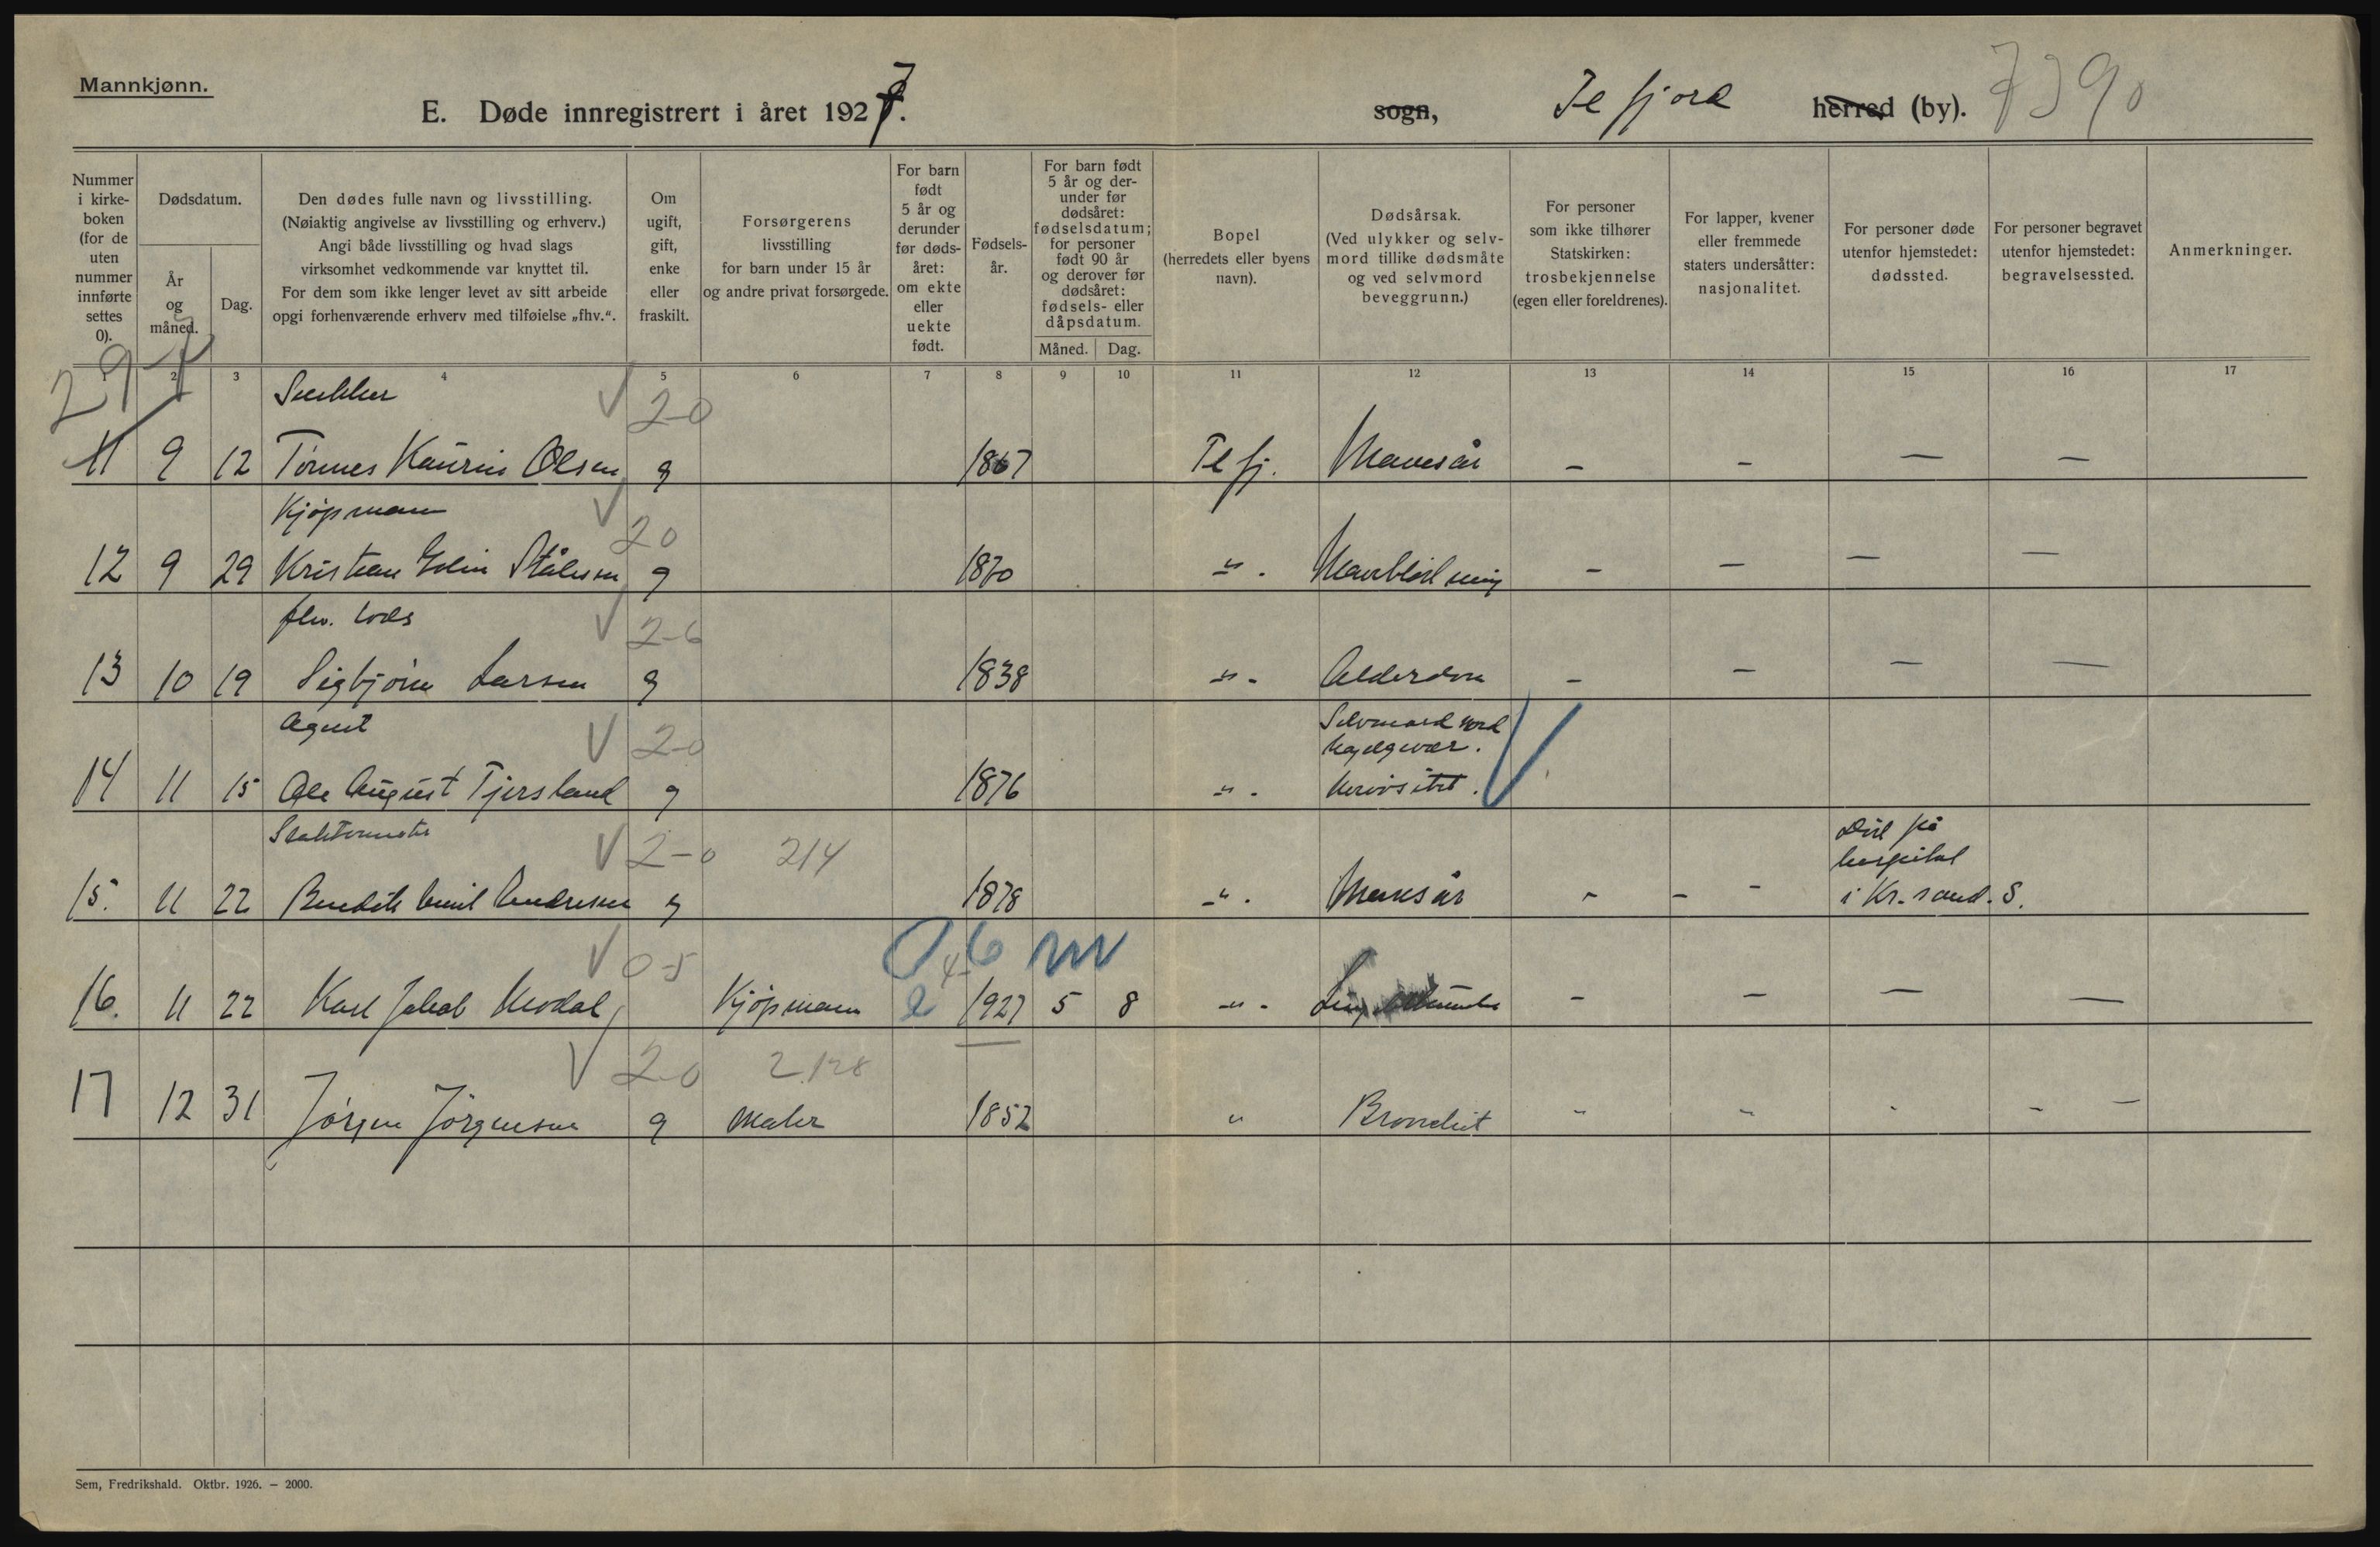 Mannkjønn.
E. Døde innregistrert i året 1927.
sogn, Flefjord herred (by). 7390
Nummer i kirkeboken (for de uten nummer innførte settes 0).
Dødsdatum.
År og måned.
Dag.
Den dødes fulle navn og livsstilling.
(Nøiaktig angivelse av livsstilling og erhverv.)
Angi både livsstilling og hvad slags
virksomhet vedkommende var knyttet til.
For dem som ikke lenger levet av sitt arbeide
opgi forhenværende erhverv med tilføielse „fhv.“.
Om ugift, gift, enke eller fraskilt.
Forsørgerens
livsstilling
for barn under 15 år
og andre privat forsørgede.
For barn født 5 år og derunder før dødsåret: om ekte eller uekte født.
Fødselsår.
For barn født 5 år og derunder før dødsåret: fødselsdatum; for personer født 90 år og derover før dødsåret: fødsels- eller dåpsdatum.
Måned. Dag.
Bopel
(herredets eller byens
navn).
Dødsårsak.
(Ved ulykker og selvmord tillike dødsmåte
og ved selvmord
beveggrunn.)
For personer
som ikke tilhører
Statskirken:
trosbekjennelse
(egen eller foreldrenes).
For lapper, kvener
eller fremmede
staters undersåtter:
nasjonalitet.
For personer døde
utenfor hjemstedet:
dødssted.
For personer begravet
utenfor hjemstedet:
begravelsessted.
Anmerkninger.
2 3 4 5 6 7 8 9 10 11 12 13 14 15 16 17
297
Snekker V 2-0
11 9 12 Tønnes Kaurin Olsen g 1867 Flefj. Mavesår - - - -
Kjøpmann V 20
12 9 29 Kristian Stålesen g 1870 -"-. Maveblødning - - - -
fhv. lods V 2-6
13 10 19 Sigbjørn Larsen g 1838 -"-. Alderdom - - - -
Agent V 2-0 Selvmord ved
hagegevær.
14 11 15 Ole August Tjersland g 1876 -"-. Nervøsitet. V
V 2-0 214 Død på
hospital
15. 11 22 Bendik Emil Andresen g 1878 -"-. Mavesår - - - i Kr.sand. S.
V 0-5 0 4-6 m
16. 11 22 Karl Jakob Modal Kjøpmann e 1927 5 8 -"-. - - - -
V 2-0 2.128
17 12 31 Jørgen Jørgensen g Maler 1852 " Bronchit - - - - -
Sem, Fredrikshald. Oktbr. 1926. — 2000.